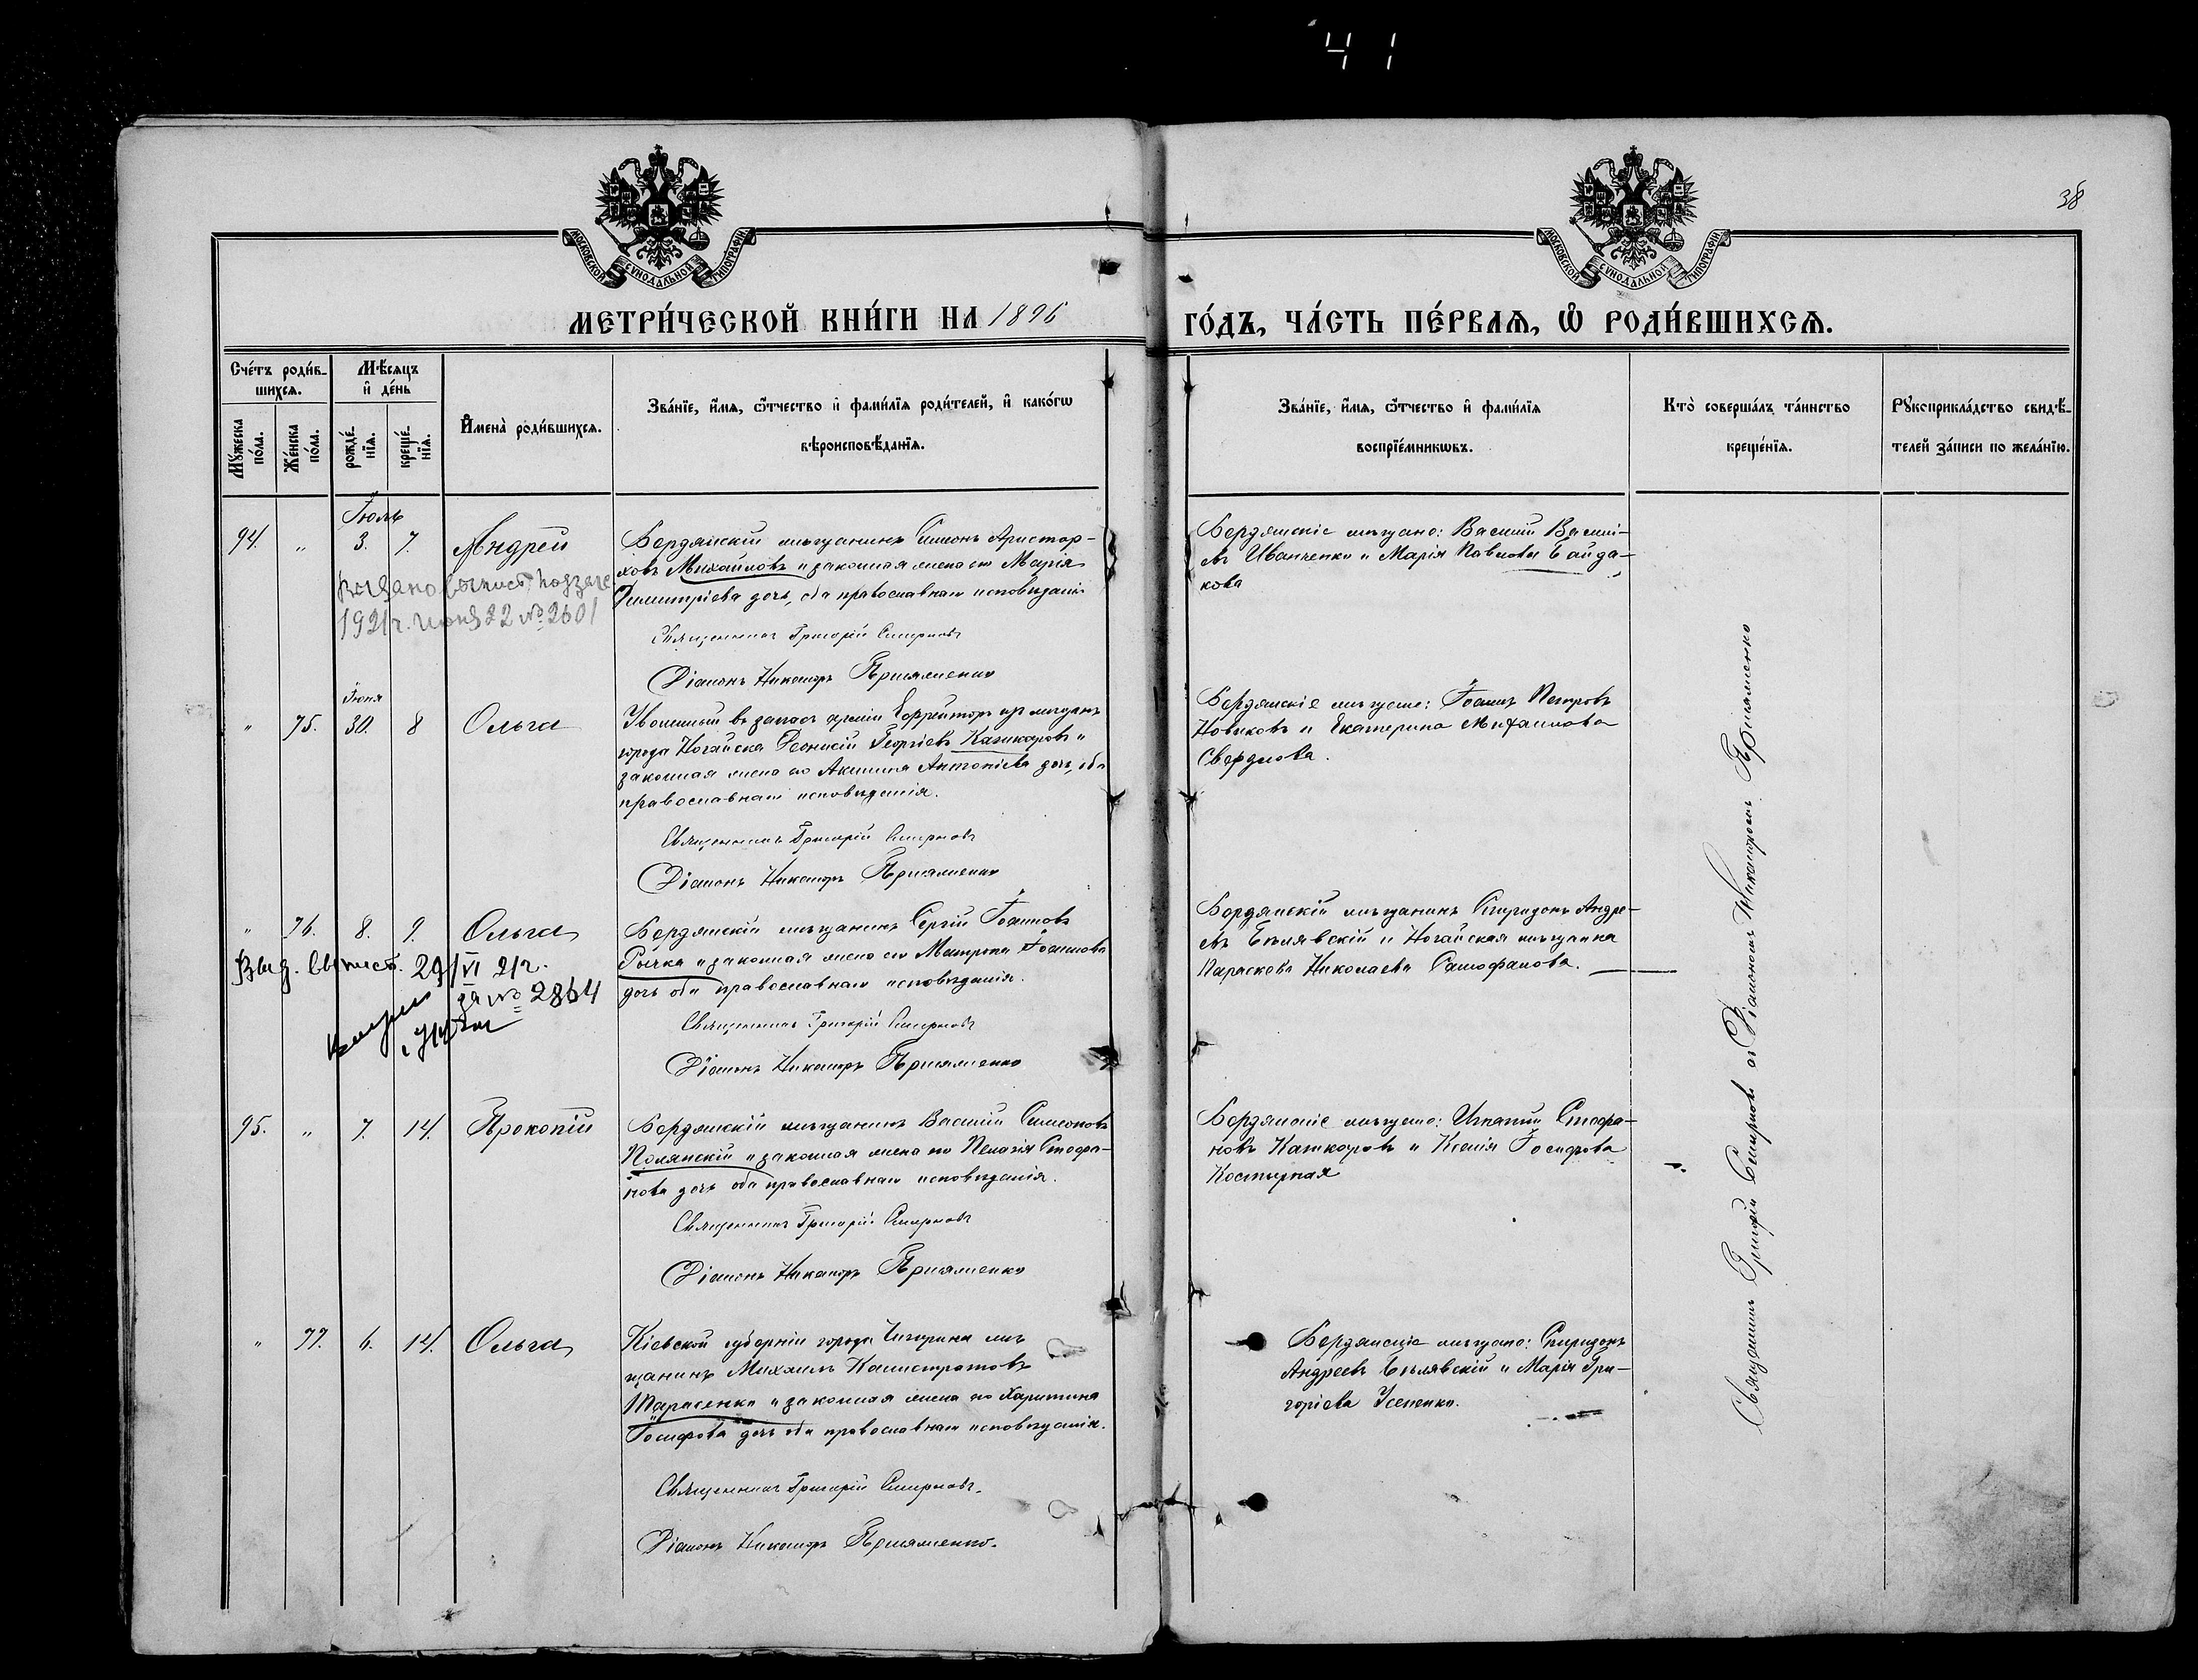 41
38
МОСКОВСКОЙ СУНОДАЛЬНОЙ ТИПОГРАФІИ
МОСКОВСКОЙ СУНОДАЛЬНОЙ ТИПОГРАФІИ
МЕТРИ́ЧЕСКОЙ КНИ́ГИ НА 1896
ГО́ДЪ, ЧА́СТЬ ПЕ́РВАѦ, Ѡ҆ РОДИ́ВШИХСѦ.
Сче́тъ роди́в-
шихсѧ.
Мѣ́сяцъ
и҆ де́нь
Мꙋжеска
по́ла.
Же́нска
по́ла.
рожде́-
нїѧ.
креще́-
нїѧ.
И҆мена̀ роди́вшихсѧ.
Зва́нїе, и҆́мѧ, ѻ҆́тчество и҆ фами́лїѧ роди́телей, и҆ како́гѡ
вѣроисповѣ́данїѧ.
Зва́нїе, и҆́мѧ, ѻ҆́тчество и҆ фами́лїѧ
воспрїе́мникѡвъ.
Кто̀ соверша́лъ та́инство
креще́нїѧ.
Рꙋкоприкла́дство свидѣ́-
телей за́писи по жела́нїю.
Іюль
94. " 3. 7. Андрей
Бердянскій мѣщанинъ Симонъ Аристар-
ховъ Михайловъ и законная жена его Марія
Димитріева дочь, оба православнаго исповѣданія
Священникъ Григорій Смирновъ
Діаконъ Никаноръ Пріяменко
Бердянскіе мѣщане: Василій Василі-
евъ Иванченко и Марія Павлова Байда-
кова
1921 г. июня 22 № 2601
Іюня
" 75. 30. 8 Ольга
Уволенный въ запасъ арміи Ефрейторъ изъ мѣщанъ
города Ногайска Діонисій Георгіевъ Кашкаровъ и
законная жена его Акилина Антоніева дочь, оба
православнаго исповѣданія.
Священникъ Григорій Смирновъ
Діаконъ Никаноръ Пріяменко
Бердянскіе мѣщане: Іоаннъ Петровъ
Новиковъ и Екатерина Михаилова
Свердлова.
" 76. 8. 9. Ольга
Бердянскій мѣщанинъ Сергій Іоанновъ
Рычка и законная жена его Матрона Іоаннова
дочь оба православнаго исповѣданія.
Священникъ Григорій Смирновъ
Діаконъ Никаноръ Пріяменко
Бердянскій мѣщанинъ Спиридонъ Андре-
евъ Бѣлявскій и Ногайская мѣщанка
Параскева Николаева
Выд. выпись. 29/VI 21 г.
за № 2864
95. " 7. 14. Прокопій
Бердянскій мѣщанинъ Василій Симоновъ
Полянскій и законная жена его Пелагія Стефа-
нова дочь оба православнаго исповѣданія.
Священникъ Григорій Смирновъ
Діаконъ Никаноръ Пріяменко
Бердянскіе мѣщане: Игнатій Стефа-
новъ Кашкаровъ и Ксенія Іосифова
Костырная
" 77. 6. 14. Ольга
Кіевской губерніи города Чигирина мѣ-
щанинъ Михаилъ Калистратовъ
Тарасенко и законная жена его Харитина
Іосифова дочь оба православнаго исповѣданія.
Священникъ Григорій Смирновъ.
Діаконъ Никаноръ Пріяменко.
Бердянскіе мѣщане: Спиридонъ
Андреевъ Бѣлявскій и Марія Гри-
горіева Усенко.
Священникъ Григорій Смирновъ съ Діакономъ Никаноромъ Пріяменко